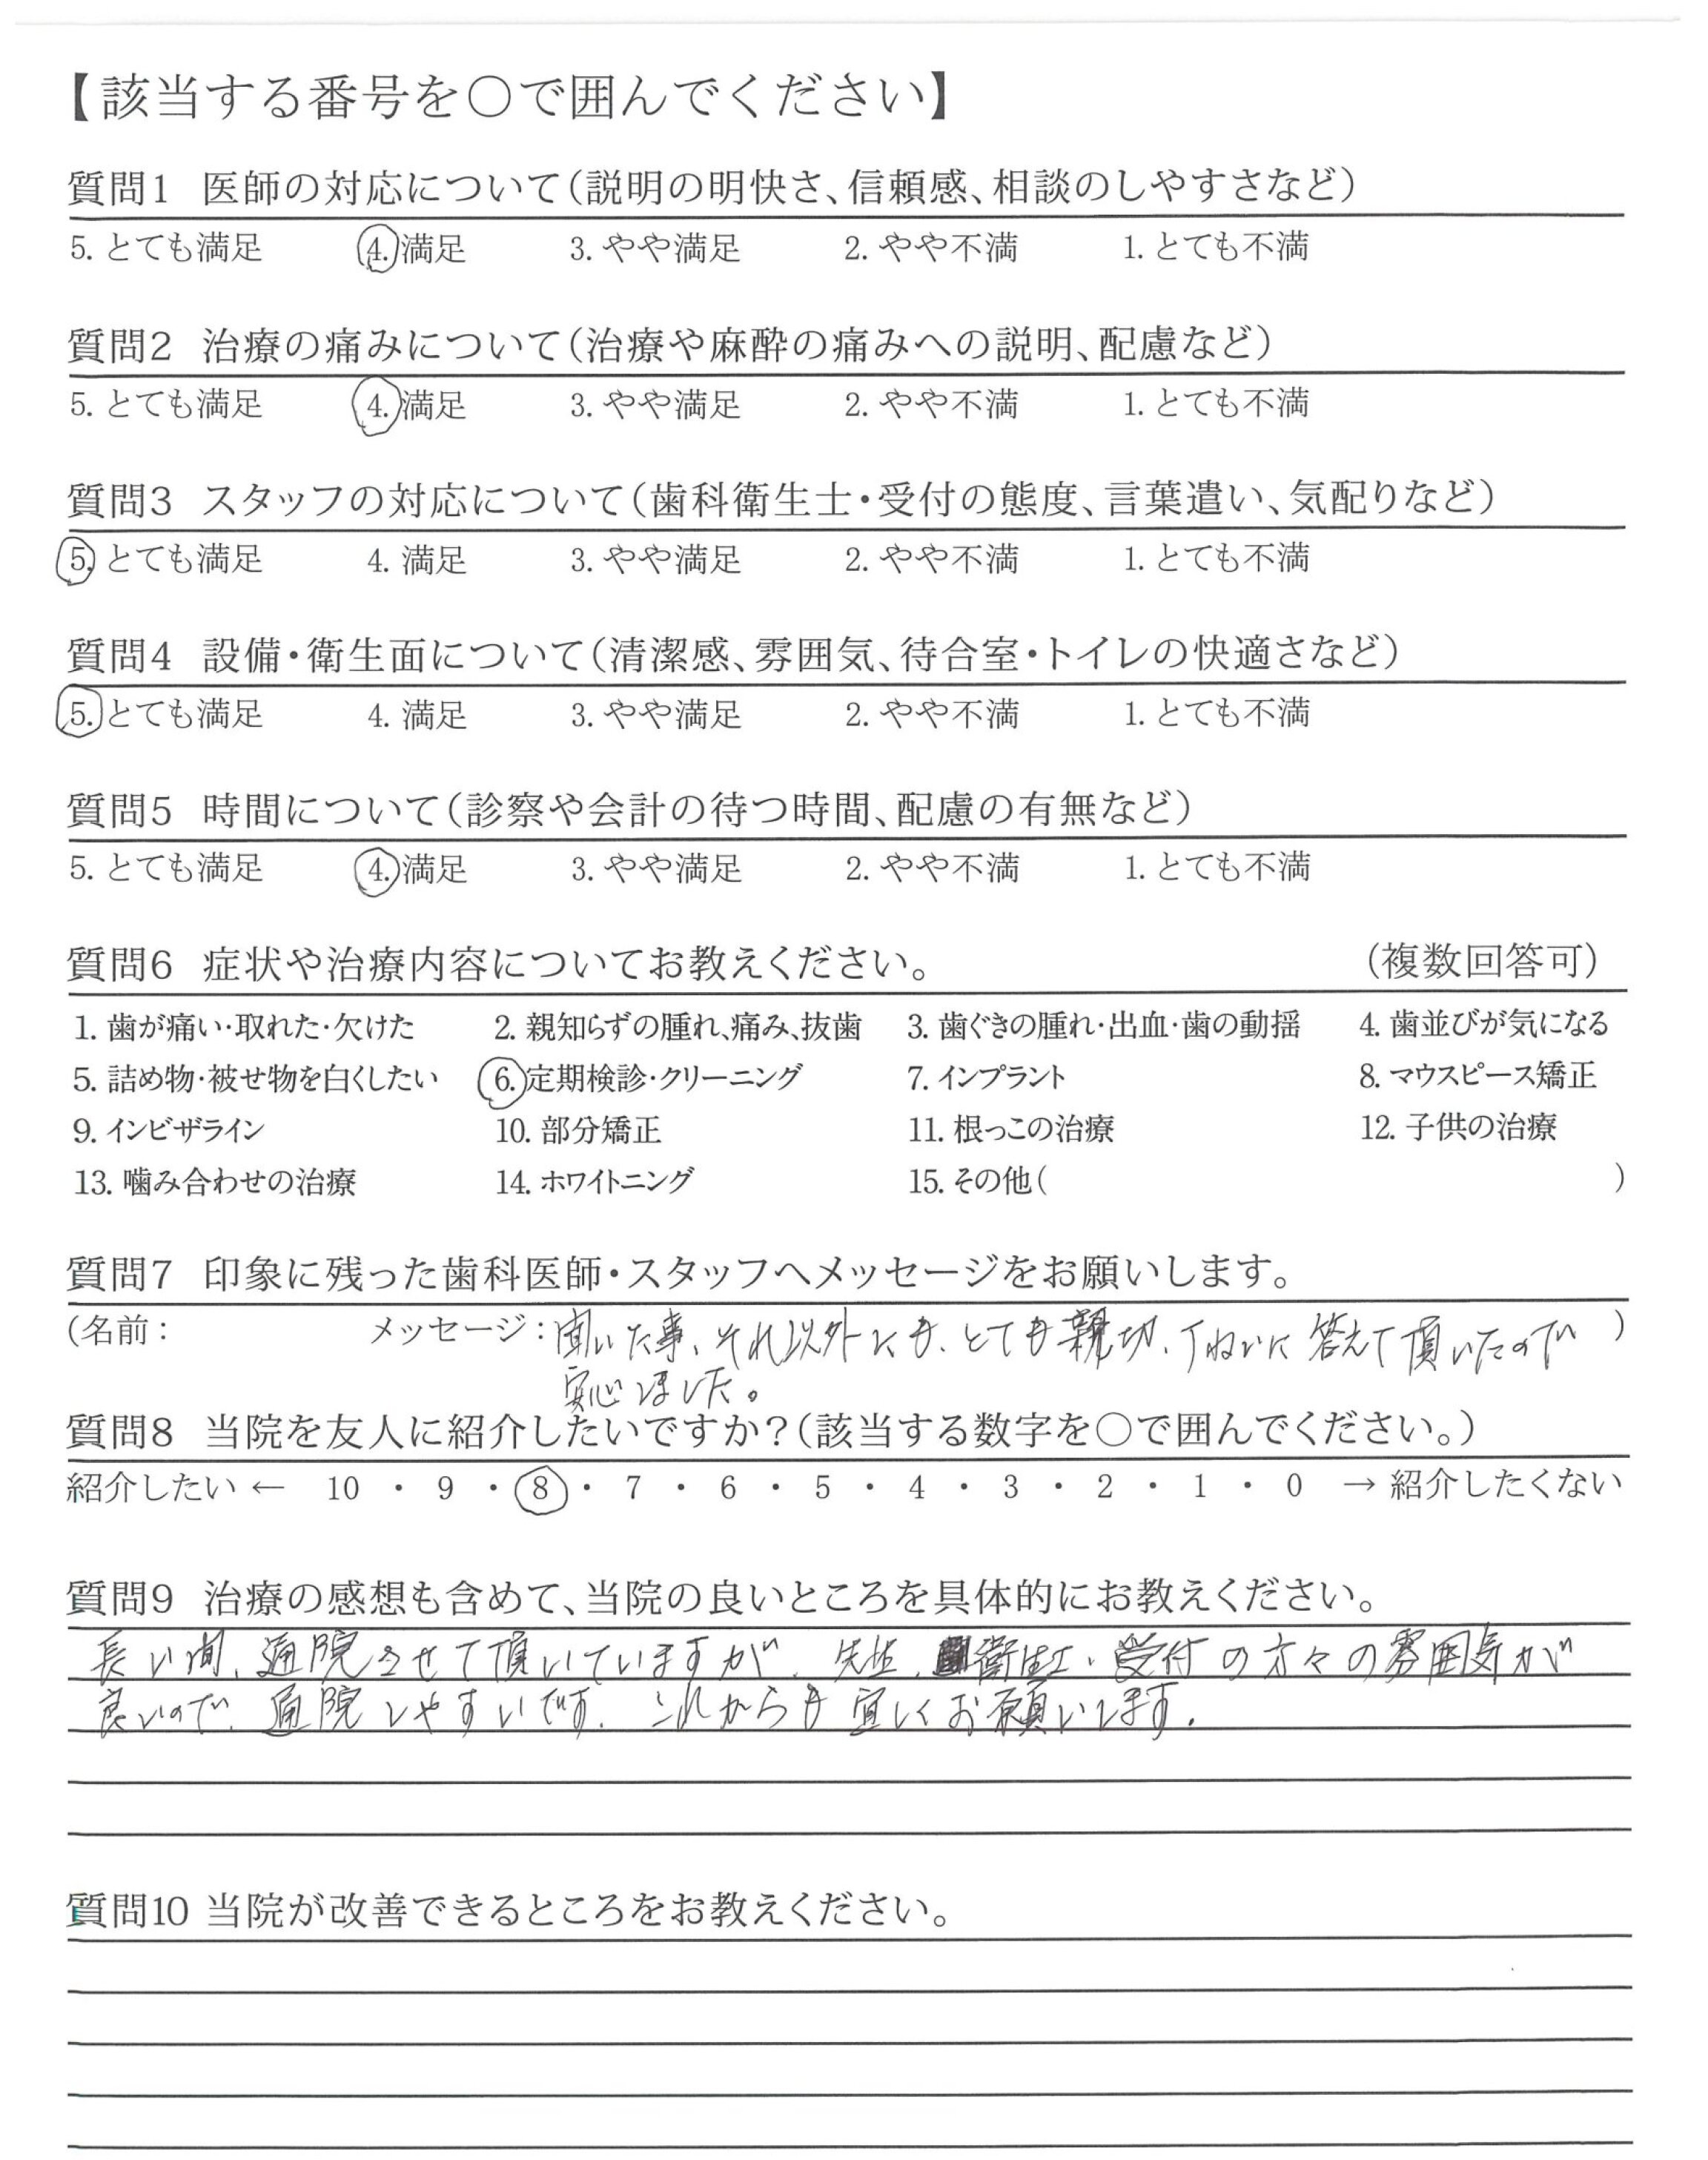 【該当する番号を○で囲んでください】
質問1 医師の対応について(説明の明快さ、信頼感、相談のしやすさなど)
5. とても満足 4. 満足 3. やや満足 2. やや不満 1. とても不満
質問2 治療の痛みについて(治療や麻酔の痛みへの説明、配慮など)
5. とても満足 4. 満足 3. やや満足 2. やや不満 1. とても不満
質問3 スタッフの対応について(歯科衛生士・受付の態度、言葉遣い、気配りなど)
5. とても満足 4. 満足 3. やや満足 2. やや不満 1. とても不満
質問4 設備・衛生面について(清潔感、雰囲気、待合室・トイレの快適さなど)
5. とても満足 4. 満足 3. やや満足 2. やや不満 1. とても不満
質問5 時間について(診察や会計の待つ時間、配慮の有無など)
5. とても満足 4. 満足 3. やや満足 2. やや不満 1. とても不満
質問6 症状や治療内容についてお教えください。 (複数回答可)
1. 歯が痛い・取れた・欠けた 2. 親知らずの腫れ、痛み、抜歯 3. 歯ぐきの腫れ・出血・歯の動揺 4. 歯並びが気になる
5. 詰め物・被せ物を白くしたい 6. 定期検診・クリーニング 7. インプラント 8. マウスピース矯正
9. インビザライン 10. 部分矯正 11. 根っこの治療 12. 子供の治療
13. 噛み合わせの治療 14. ホワイトニング 15. その他( )
質問7 印象に残った歯科医師・スタッフへメッセージをお願いします。
(名前: メッセージ:聞いた事、それ以外にも、とても親切、ていねいに答えて頂いたので )
安心しました。
質問8 当院を友人に紹介したいですか?(該当する数字を○で囲んでください。)
紹介したい ← 10 ・ 9 ・ 8 ・ 7 ・ 6 ・ 5 ・ 4 ・ 3 ・ 2 ・ 1 ・ 0 → 紹介したくない
質問9 治療の感想も含めて、当院の良いところを具体的にお教えください。
長い間、通院させて頂いていますが、先生、衛生士、受付の方々の雰囲気が
良いので、通院しやすいです。これからも宜しくお願いします。
質問10 当院が改善できるところをお教えください。